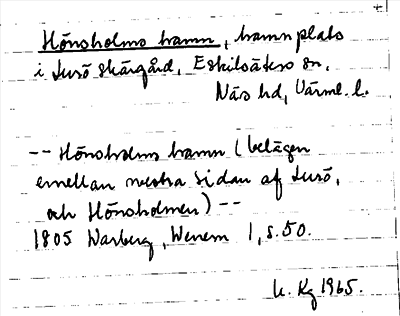 Hönsholms hamn, hamnplats
i Lurö skärgård, Eskilsäters sn,
Näs hd, Värml. l.
-- Hönsholms hamn (belägen
emellan westra sidan af Lurö,
och Hönsholmen) --
1805 Warberg, Wenern 1, s. 50.
U. Kg 1965.